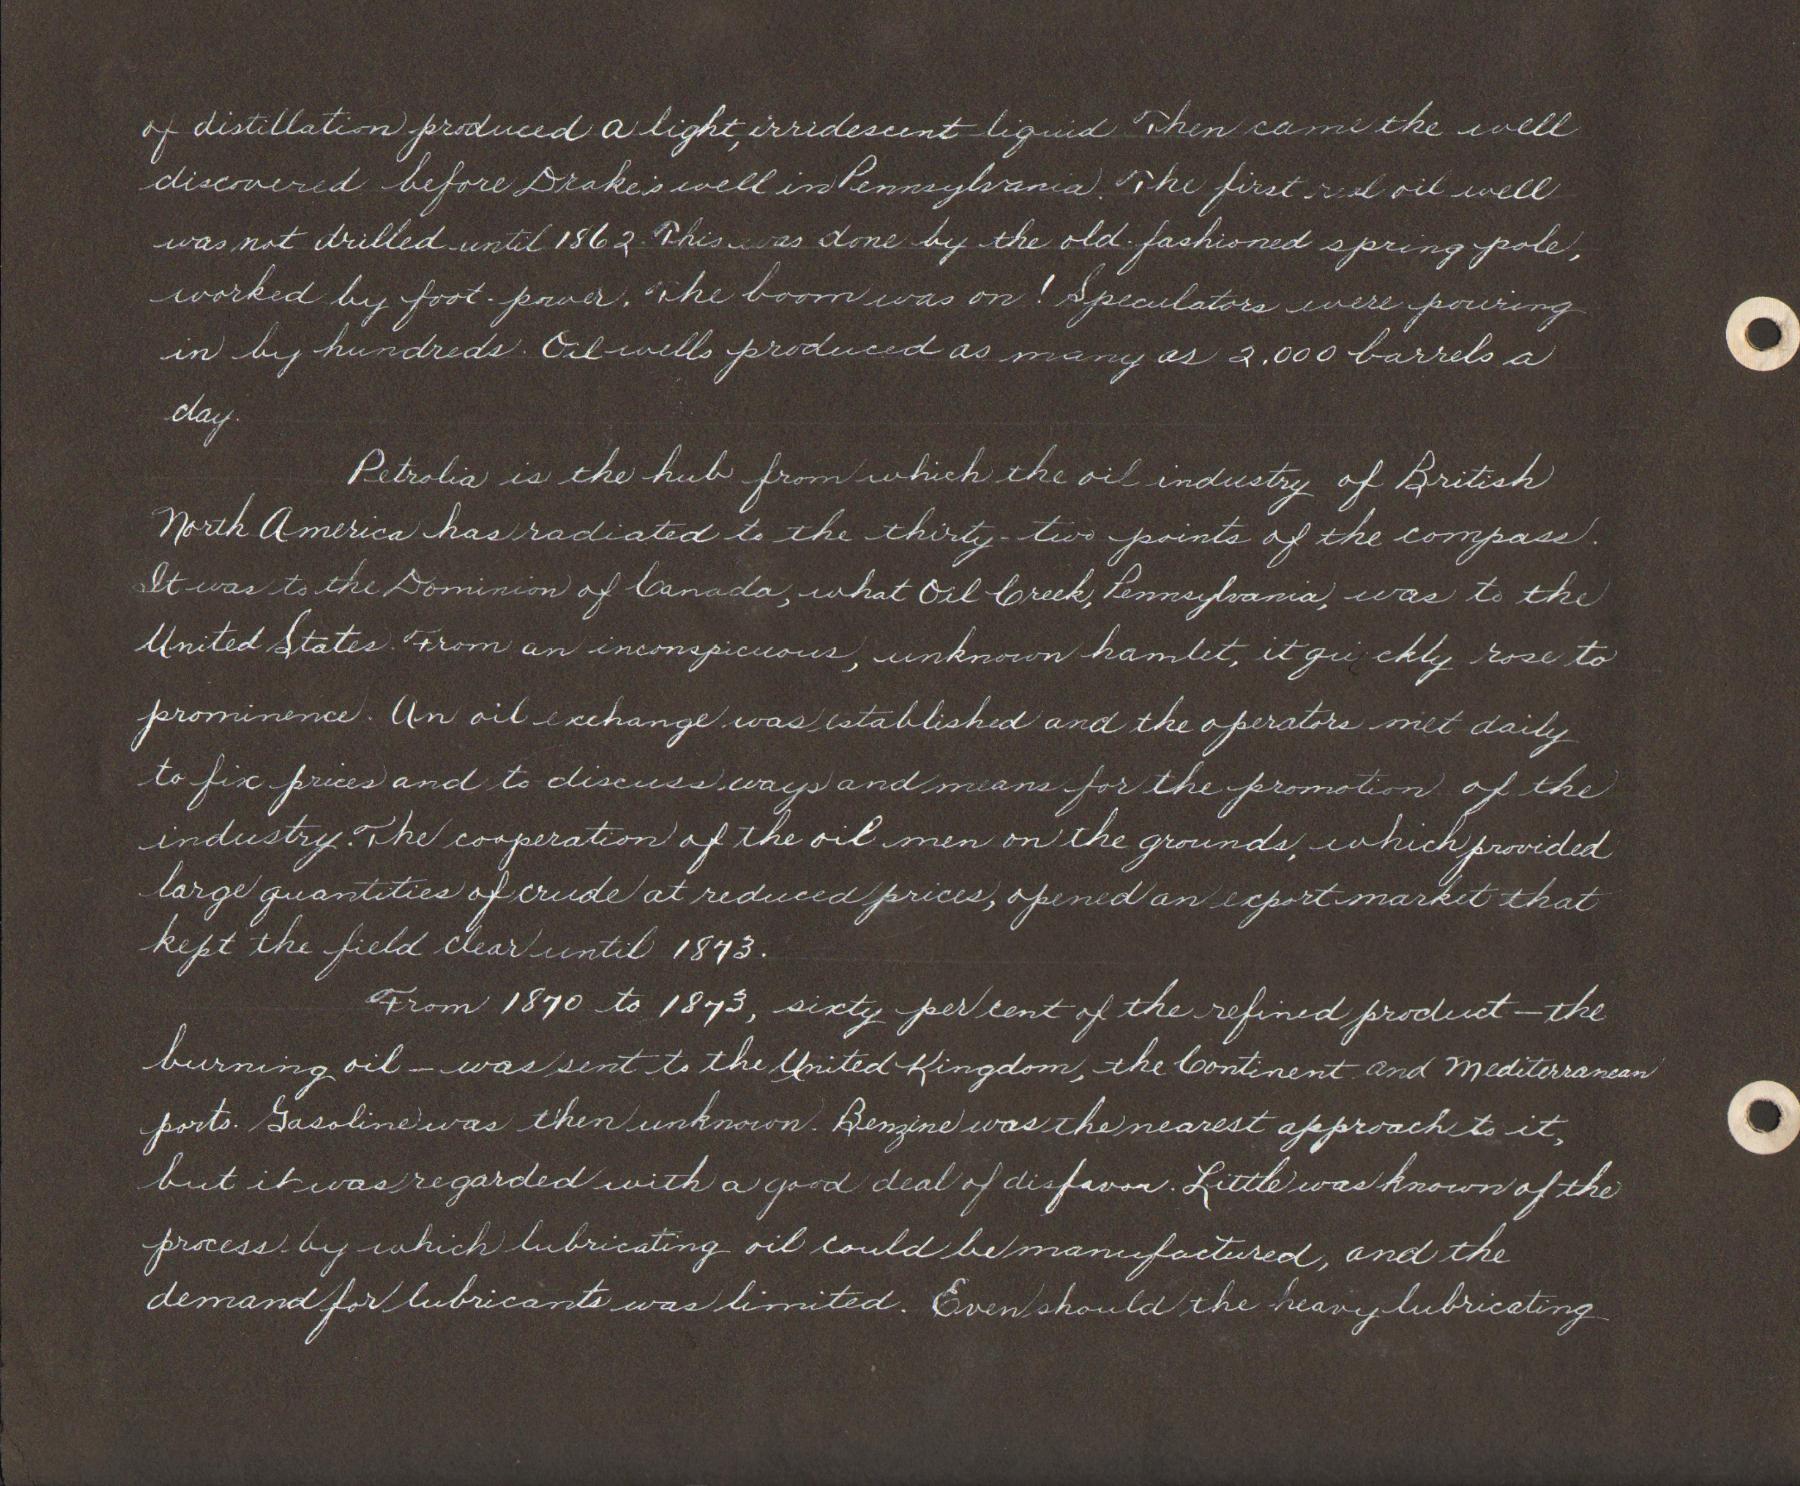 of distillation produced a light, irridescent liquid Then came the well
discovered before Drake's well in Pennsylvania. The first real oil well
was not drilled until 1862. This was done by the old-fashioned spring pole,
worked by foot-power. The boom was on! Speculators were pouring
in by hundreds. Oil wells produced as many as 2,000 barrels a
day.
Petrolia is the hub from which the oil industry of British
North America has radiated to the thirty-two points of the compass.
It was to the Dominion of Canada, what Oil Creek, Pennsylvania, was to the
United States. From an inconspicuous, unknown hamlet, it quickly rose to
prominence. An oil exchange was established and the operators met daily
to fix prices and to discuss ways and means for the promotion of the
industry. The cooperation of the oil men on the grounds, which provided
large quantities of crude at reduced prices, opened an export market that
kept the field clear until 1873.
From 1870 to 1873, sixty per cent of the refined product — the
burning oil — was sent to the United Kingdom, the Continent and Mediterranean
ports. Gasoline was then unknown. Benzine was the nearest approach to it,
but it was regarded with a good deal of disfavor. Little was known of the
process by which lubricating oil could be manufactured, and the
demand for lubricants was limited. Even should the heavy lubricating